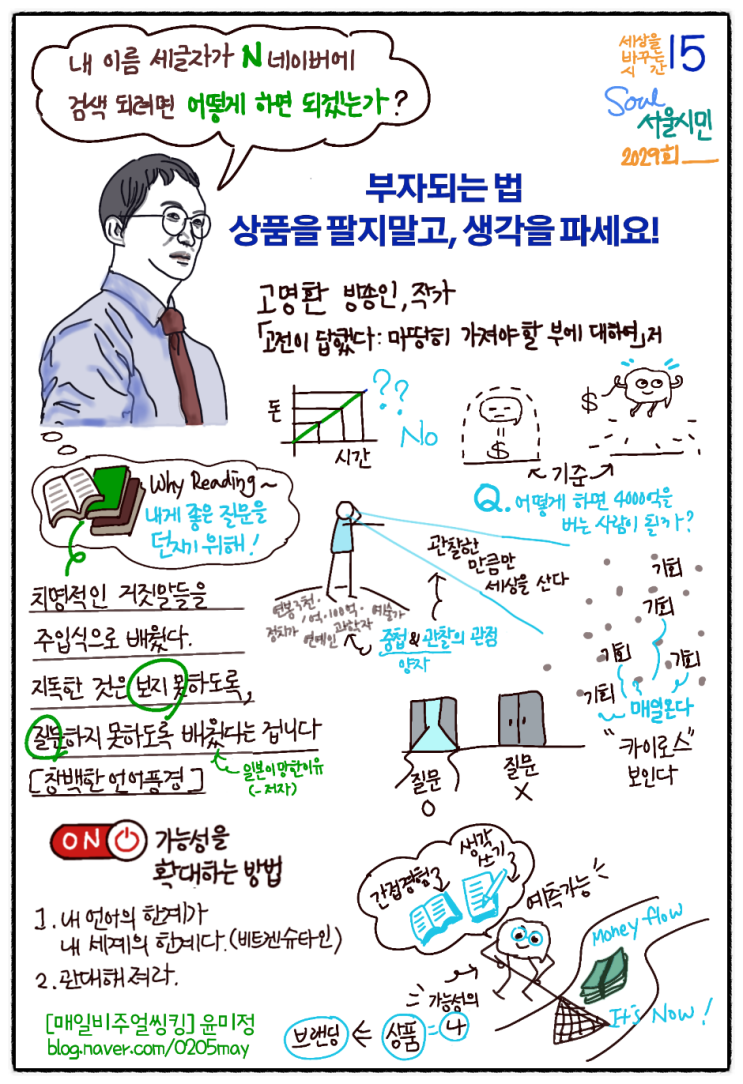 내 이름 세글자가 N 네이버에
검색 되려면 어떻게 하면 되겠는가?
세상을
바꾸는
시 간
15
Soul
서울시민
2029회
부자되는 법
상품을 팔지말고, 생각을 파세요!
고명환 방송인, 작가
「고전이 답했다: 마땅히 가져야할 부에 대하여」저
돈
시간
??
No
$
$
기준
Why Reading~
내게 좋은 질문을
던지기 위해!
Q. 어떻게 하면 4000억을
버는 사람이 될까?
관찰한
만큼만
세상을 산다
치명적인 거짓말들을
주입식으로 배웠다.
지독한 것은 보지 못하도록,
질문하지 못하도록 배웠다는 겁니다
[창백한 언어풍경]
일본이 망한이유
(- 저자)
연봉3천·
1억·100억· 예술가
정치가 연예인 과학자
중첩 & 관찰의 관점
양자
기회
기회
기회
기회
기회
매일온다
"카이로스"
보인다
질문
O
질문
X
ON
가능성을
확대하는 방법
1. 내 언어의 한계가
내 세계의 한계다. (비트겐슈타인)
2. 관대해져라.
간접경험
생각
쓰기
예측가능
Money flow
It's Now!
가능성의
브랜딩 ⇐ 상품 = 나
[매일비주얼씽킹] 윤미정
blog.naver.com/0205may